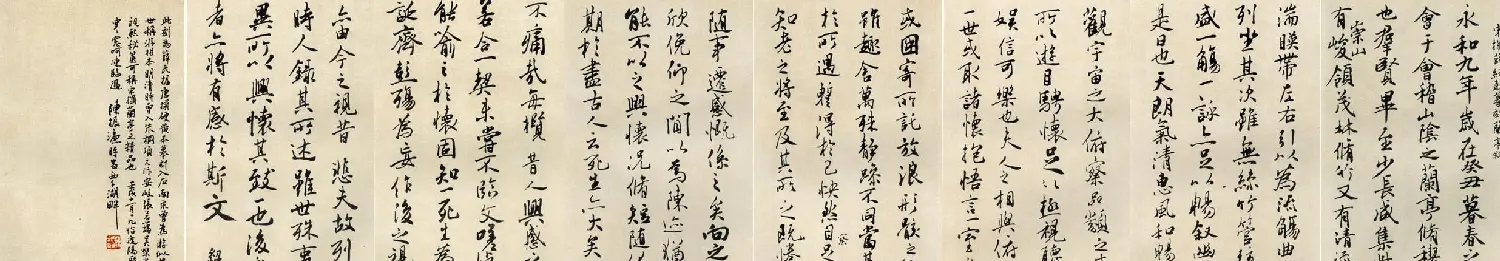 永和九年歲在癸丑暮春之
會于會稽山陰之蘭亭脩稧
也群賢畢至少長咸集此
崇山
有峻領茂林脩竹又有清流
湍暎帶左右引以為流觴曲
列坐其次雖無絲竹管弦
盛一觴一詠亦足以暢敘幽
是日也天朗氣清惠風和暢
觀宇宙之大俯察品類之
所以遊目騁懷足以極視聽
娛信可樂也夫人之相與俯
一世或取諸懷抱悟言一室
或因寄所託放浪形骸之
雖趣舍萬殊靜躁不同當其
於所遇蹔得於己怏然自足
知老之將至及其所之既惓
隨事遷感慨係之矣向之
欣俛仰之間以為陳迹猶
能不以之興懷況脩短隨
期於盡古人云死生亦大矣
不痛哉每攬昔人興感
若合一契未嘗不臨文嗟悼
能喻之於懷固知一死生為
誕齊彭殤為妄作後之視
亦由今之視昔悲夫故列
時人錄其所述雖世殊事
異所以興懷其致一也後
者亦將有感於斯文
此刻為薛氏據唐摹硬黃本摹刻入石南宋
雪窗呵凍臨過 陳振濂時居西子湖畔